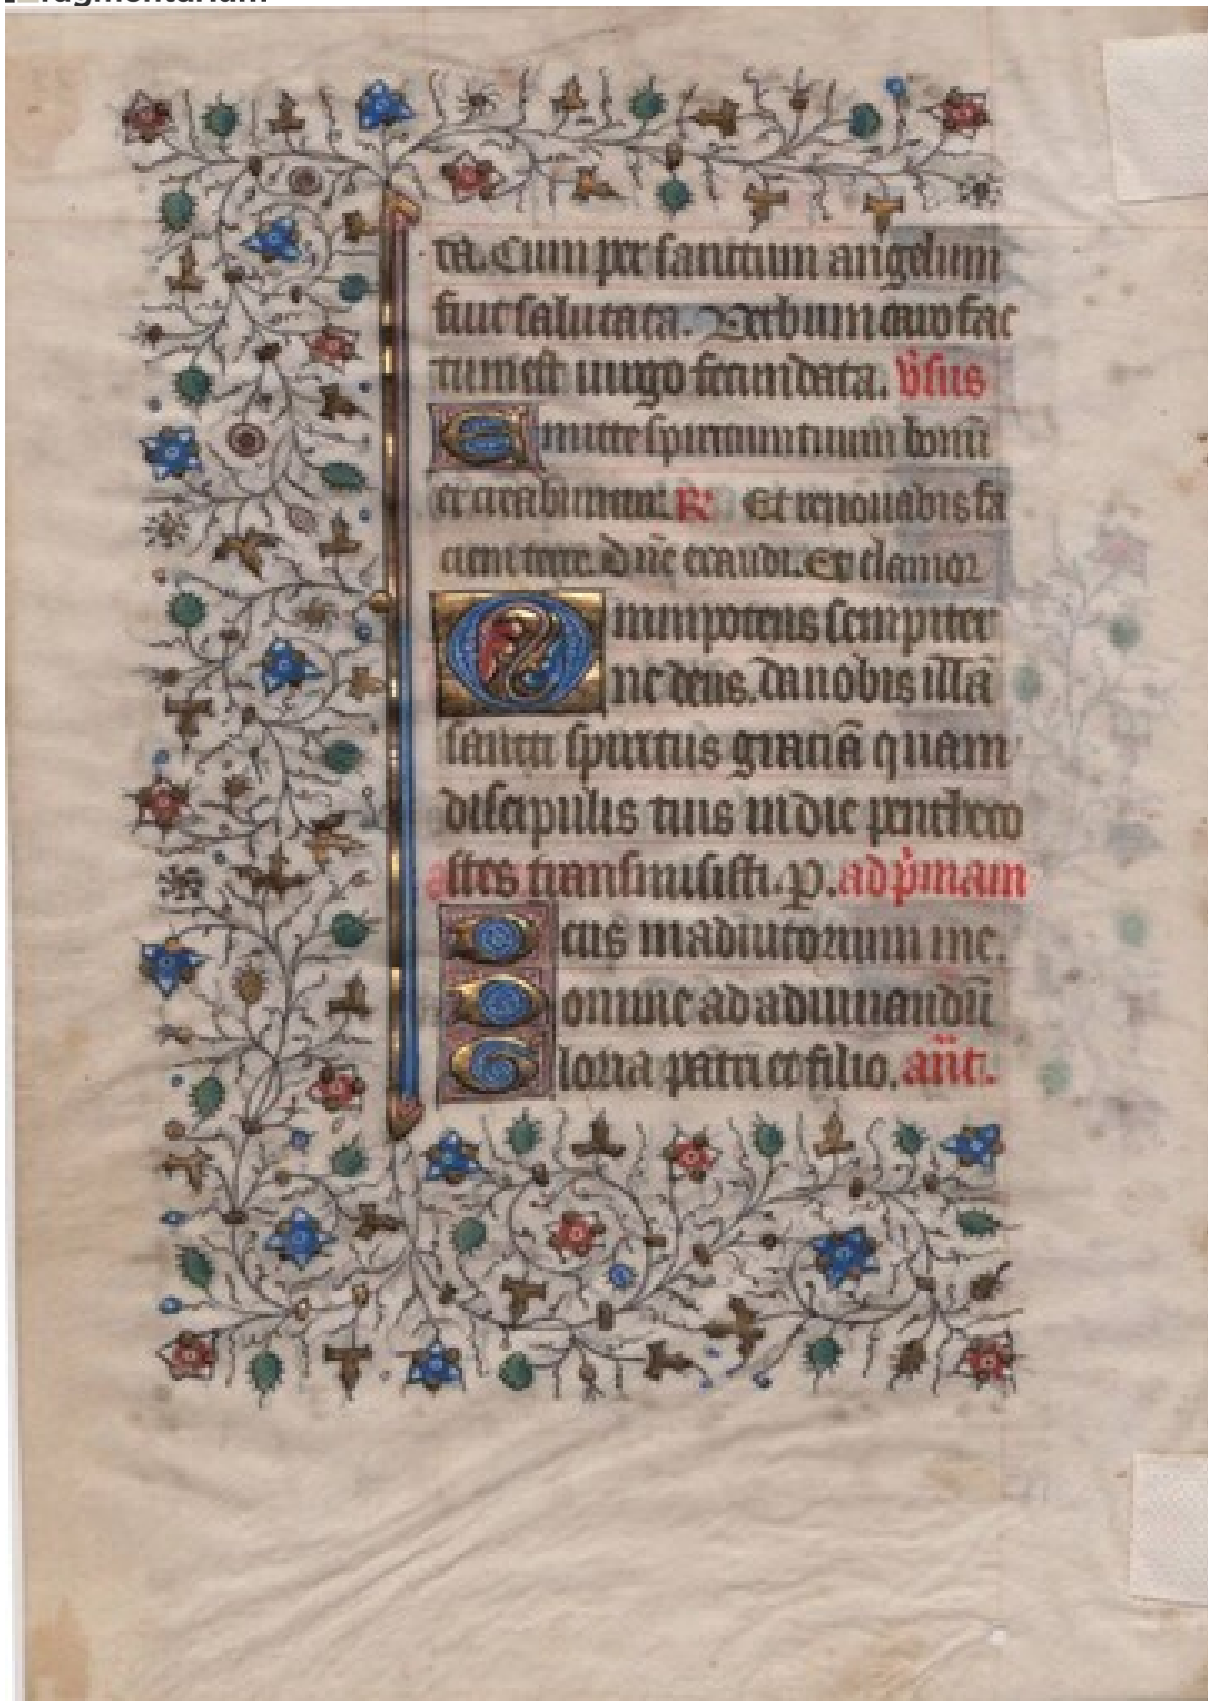 ragmentarium
ta. Cum per sanctum angelum
fuit salutata. Verbum caro fac
tum est uirgo fecundata. v̾sus
Emitte spiritum tuum bonū
et creabuntur. R̾ Et renouabis fa
ciem terre. Dn̄e exaudi. Et clamor
Omnipotens sempiter
ne deus. da nobis illā
sancti spiritus gratiā quam
discipulis tuis in die pentheco
stes transmisisti. P. ad p̾mam
Deus in adiutorium me.
Domine ad adiuuandū
Gloria patri et filio. an̄t.